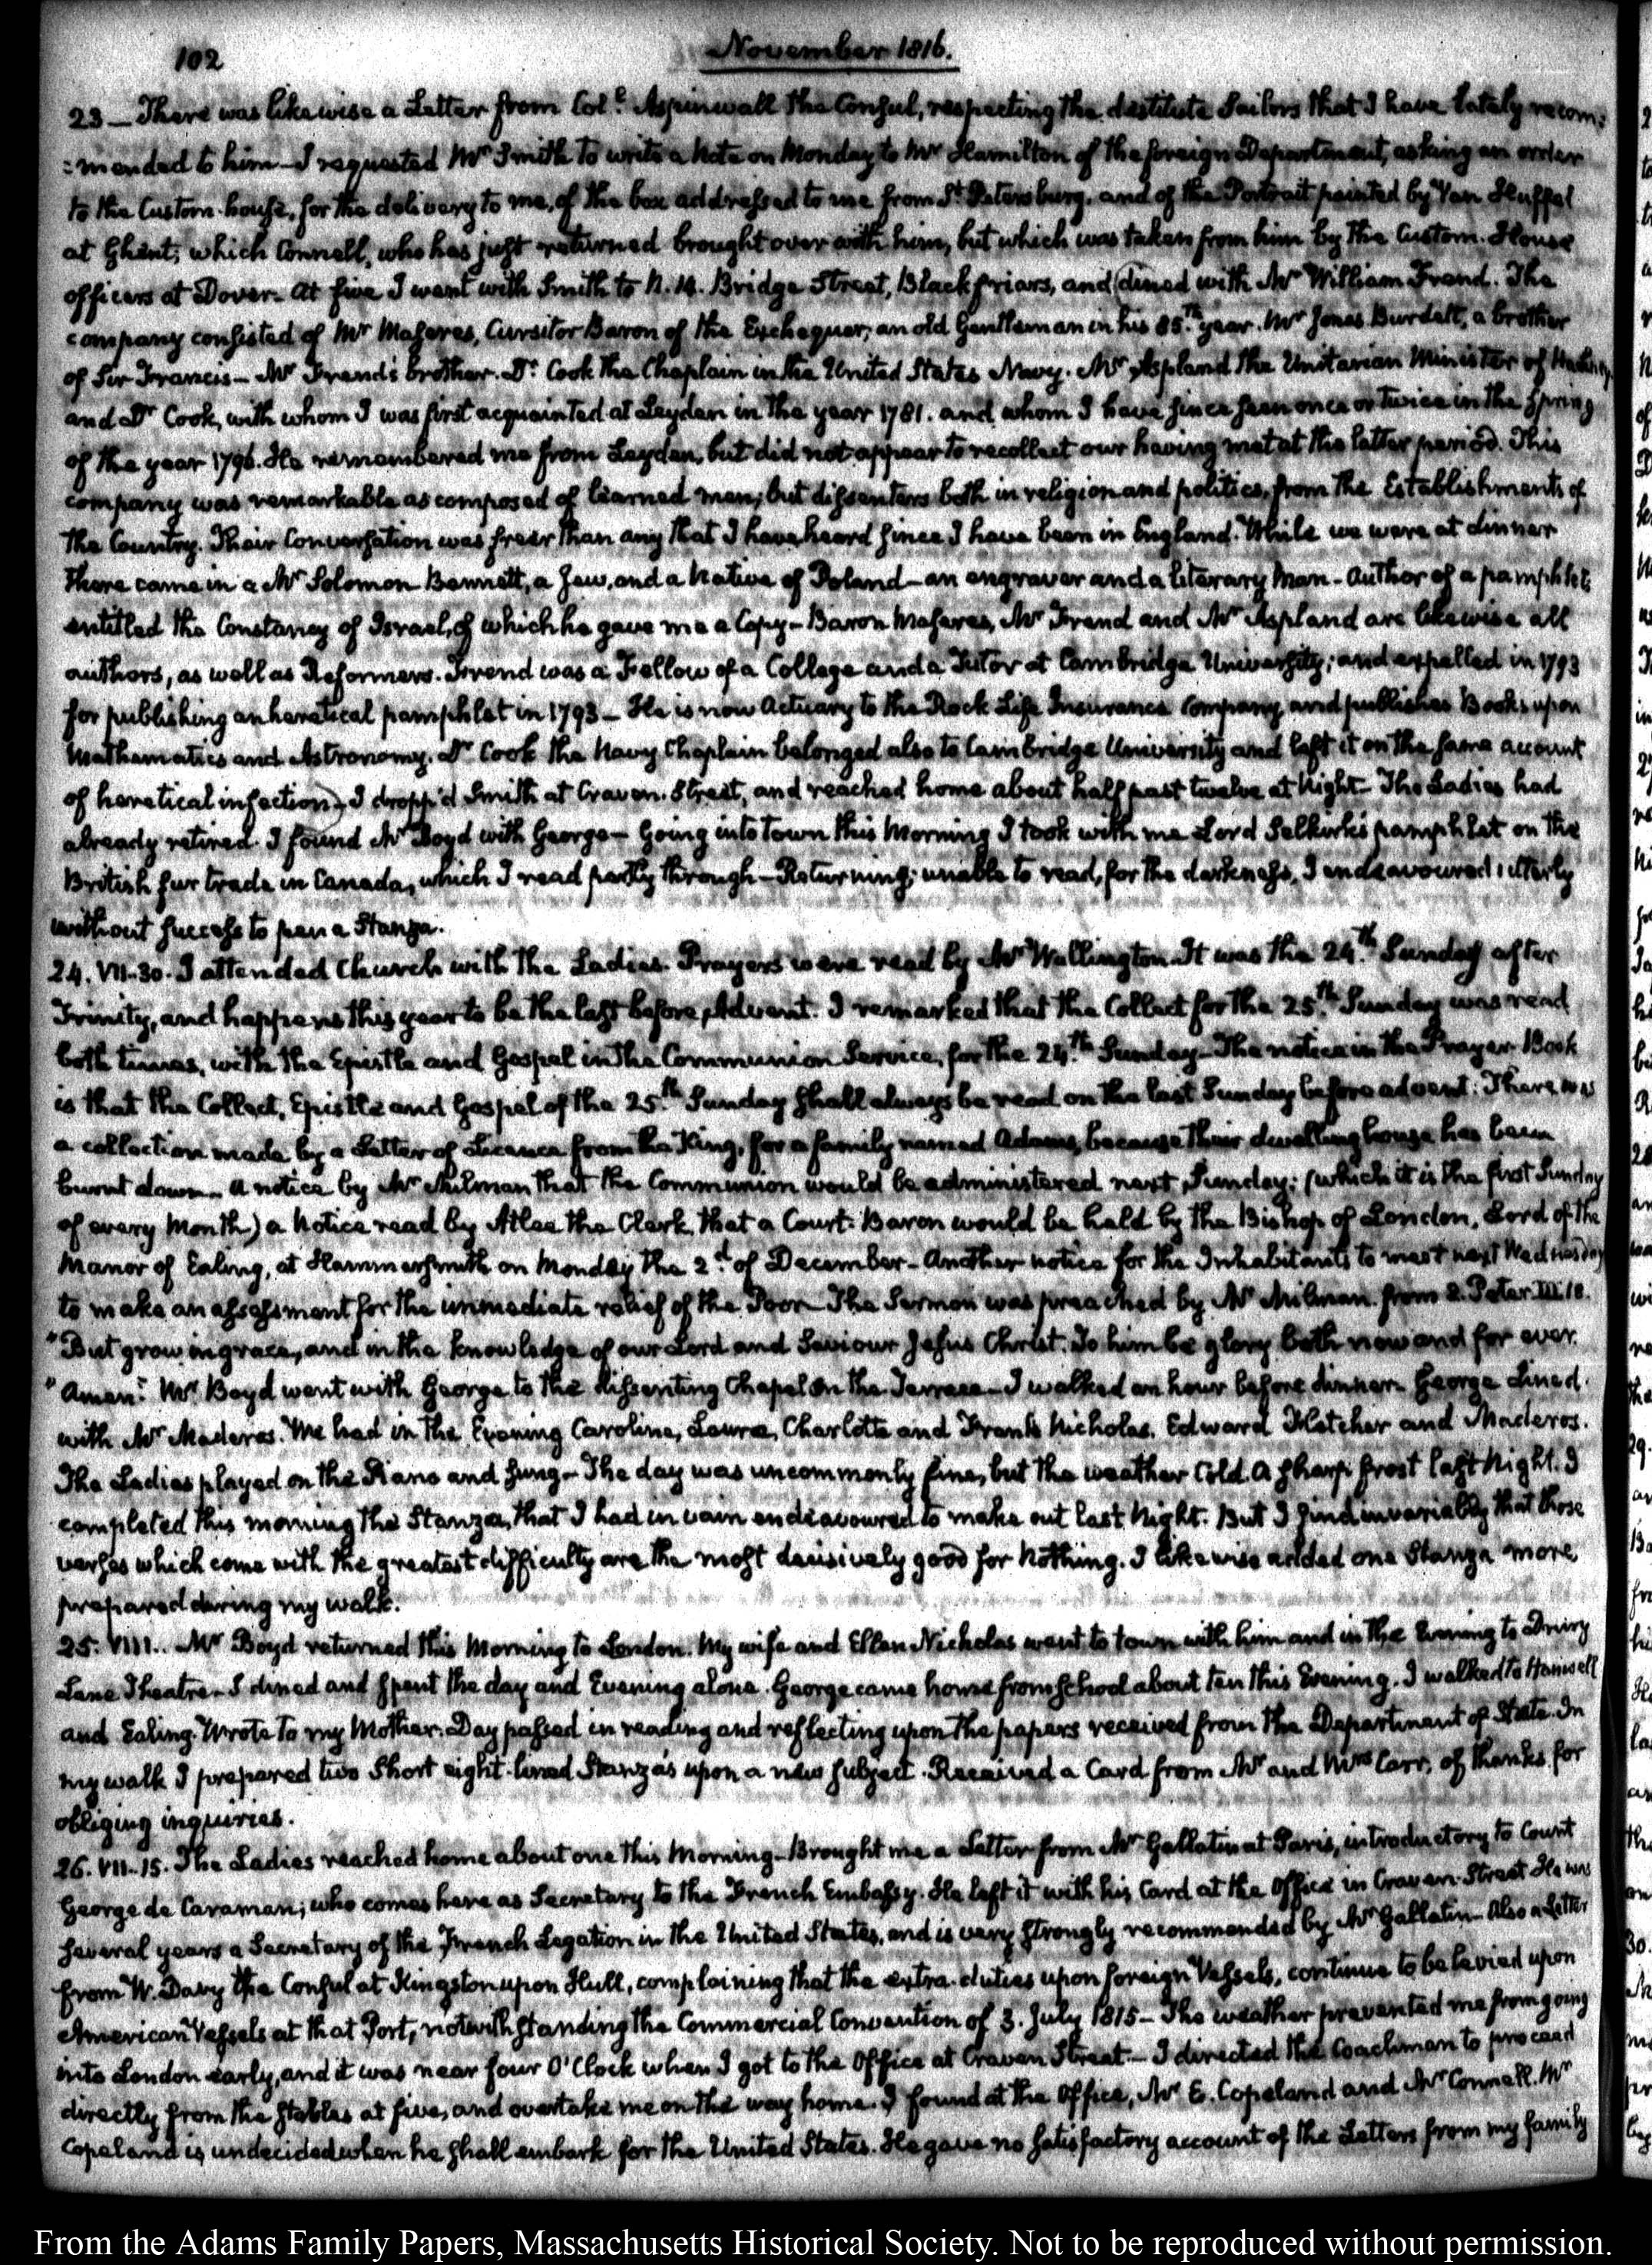 102
November 1816.
23 — There was likewise a Letter from Coll. Aspinwall the Consul, respecting the destitute Sailors that I have lately recom:
:mended to him — I requested Mr Smith to write a Note on Monday to Mr Hamilton of the foreign Department, asking an order
to the Custom-house, for the delivery to me, of the box addressed to me from St. Petersburg, and of the Portrait painted by Van Huffel
at Ghent; which Connell, who has just returned brought over with him, but which was taken from him by the Custom-House
officers at Dover. At five I went with Smith to N. 14. Bridge Street, Blackfriars, and dined with Mr William Frend. The
company consisted of Mr Maseres, Cursitor Baron of the Exchequer; an old Gentleman in his 85th. year. Mr Jones Burdett, a brother
of Sir Francis — Mr Frend's brother. Dr. Cook the Chaplain in the United States Navy. Mr Aspland the Unitarian Minister of Hackney
and Dr Cook, with whom I was first acquainted at Leyden in the year 1781. and whom I have since seen once or twice in the Spring
of the year 1796. He remembered me from Leyden, but did not appear to recollect our having met at the latter period. This
company was remarkable as composed of learned men; but dissenters both in religion and politics, from the Establishments of
the Country. Their Conversation was freer than any that I have heard since I have been in England. While we were at dinner
there came in a Mr Solomon Bennett, a Jew, and a Native of Poland — an engraver and a literary Man — Author of a pamphlet
entitled the Constancy of Israel, of which he gave me a Copy — Baron Maseres, Mr Frend and Mr Aspland are likewise all
authors, as well as Reformers. Frend was a Fellow of a College and a Tutor at Cambridge University; and expelled in 1793
for publishing an heretical pamphlet in 1793 — He is now Actuary to the Rock Life Insurance Company, and publishes Books upon
Mathematics and Astronomy. Dr Cook the Navy Chaplain belonged also to Cambridge University and left it on the same account
of heretical infection — I dropp'd Smith at Craven-Street, and reached home about half past twelve at Night — The Ladies had
already retired. I found Mr Boyd with George — Going into town this Morning I took with me Lord Selkirk's pamphlet on the
British fur trade in Canada, which I read partly through — Returning; unable to read, for the darkness, I endeavoured utterly
without success to pen a Stanza.
24. VII-30. I attended Church with the Ladies. Prayers were read by Mr Wallington. It was the 24th. Sunday after
Trinity, and happens this year to be the last before Advent. I remarked that the Collect for the 25th. Sunday was read
both times, with the Epistle and Gospel in the Communion Service, for the 24th. Sunday — The notice in the Prayer Book
is that the Collect, Epistle and Gospel of the 25th. Sunday shall always be read on the last Sunday before advent. There was
a collection made by a Letter of Licence from the King, for a family named Adams, because their dwelling house has been
burnt down — A notice by Mr Milman that the Communion would be administered next Sunday; (which it is the first Sunday
of every Month) a Notice read by Atlee the Clerk, that a Court-Baron would be held by the Bishop of London, Lord of the
Manor of Ealing, at Hammersmith on Monday the 2d. of December — Another notice for the Inhabitants to meet next Wednesday
to make an assessment for the immediate relief of the Poor — The Sermon was preached by Mr Milman from 2. Peter III. 18.
"But grow in grace, and in the knowledge of our Lord and Saviour Jesus Christ. To him be glory both now and for ever.
"Amen." Mr Boyd went with George to the dissenting Chapel on the Terrace — I walked an hour before dinner. George dined
with Mr Maderos. We had in the Evening Caroline, Laura, Charlotte and Frank Nicholas, Edward Fletcher and Maderos.
The Ladies played on the Piano and sung — The day was uncommonly fine, but the weather Cold. A sharp frost last Night. I
completed this morning the Stanza, that I had in vain endeavoured to make out last Night. But I find invariably that those
verses which come with the greatest difficulty are the most decisively good for Nothing. I likewise added one Stanza more,
prepared during my walk.
25. VIII.. Mr Boyd returned this Morning to London. My wife and Ellen Nicholas went to town with him and in the Evening to Drury
Lane Theatre — I dined and spent the day and Evening alone. George came home from School about ten this Evening. I walked to Hanwell
and Ealing. Wrote to my Mother. Day passed in reading and reflecting upon the papers received from the Department of State. In
my walk I prepared two short eight-lined Stanza's upon a new subject. Received a Card from Mr and Mrs Carr, of thanks for
obliging inquiries.
26. VII-15. The Ladies reached home about one this Morning — Brought me a Letter from Mr Gallatin at Paris, introductory to Count
George de Caraman; who comes here as Secretary to the French Embassy. He left it with his Card at the Office in Craven-Street He was
several years a Secretary of the French Legation in the United States, and is very strongly recommended by Mr Gallatin — Also a Letter
from W. Davy the Consul at Kingston upon Hull, complaining that the extra-duties upon foreign Vessels, continue to be levied upon
American Vessels at that Port, notwithstanding the Commercial Convention of 3. July 1815 — The weather prevented me from going
into London early, and it was near four O'Clock when I got to the Office at Craven Street — I directed the Coachman to proceed
directly from the stables at five, and overtake me on the way home. I found at the Office, Mr E. Copeland and Mr Connell. Mr
Copeland is undecided when he shall embark for the United States. He gave no satisfactory account of the Letters from my family
From the Adams Family Papers, Massachusetts Historical Society. Not to be reproduced without permission.